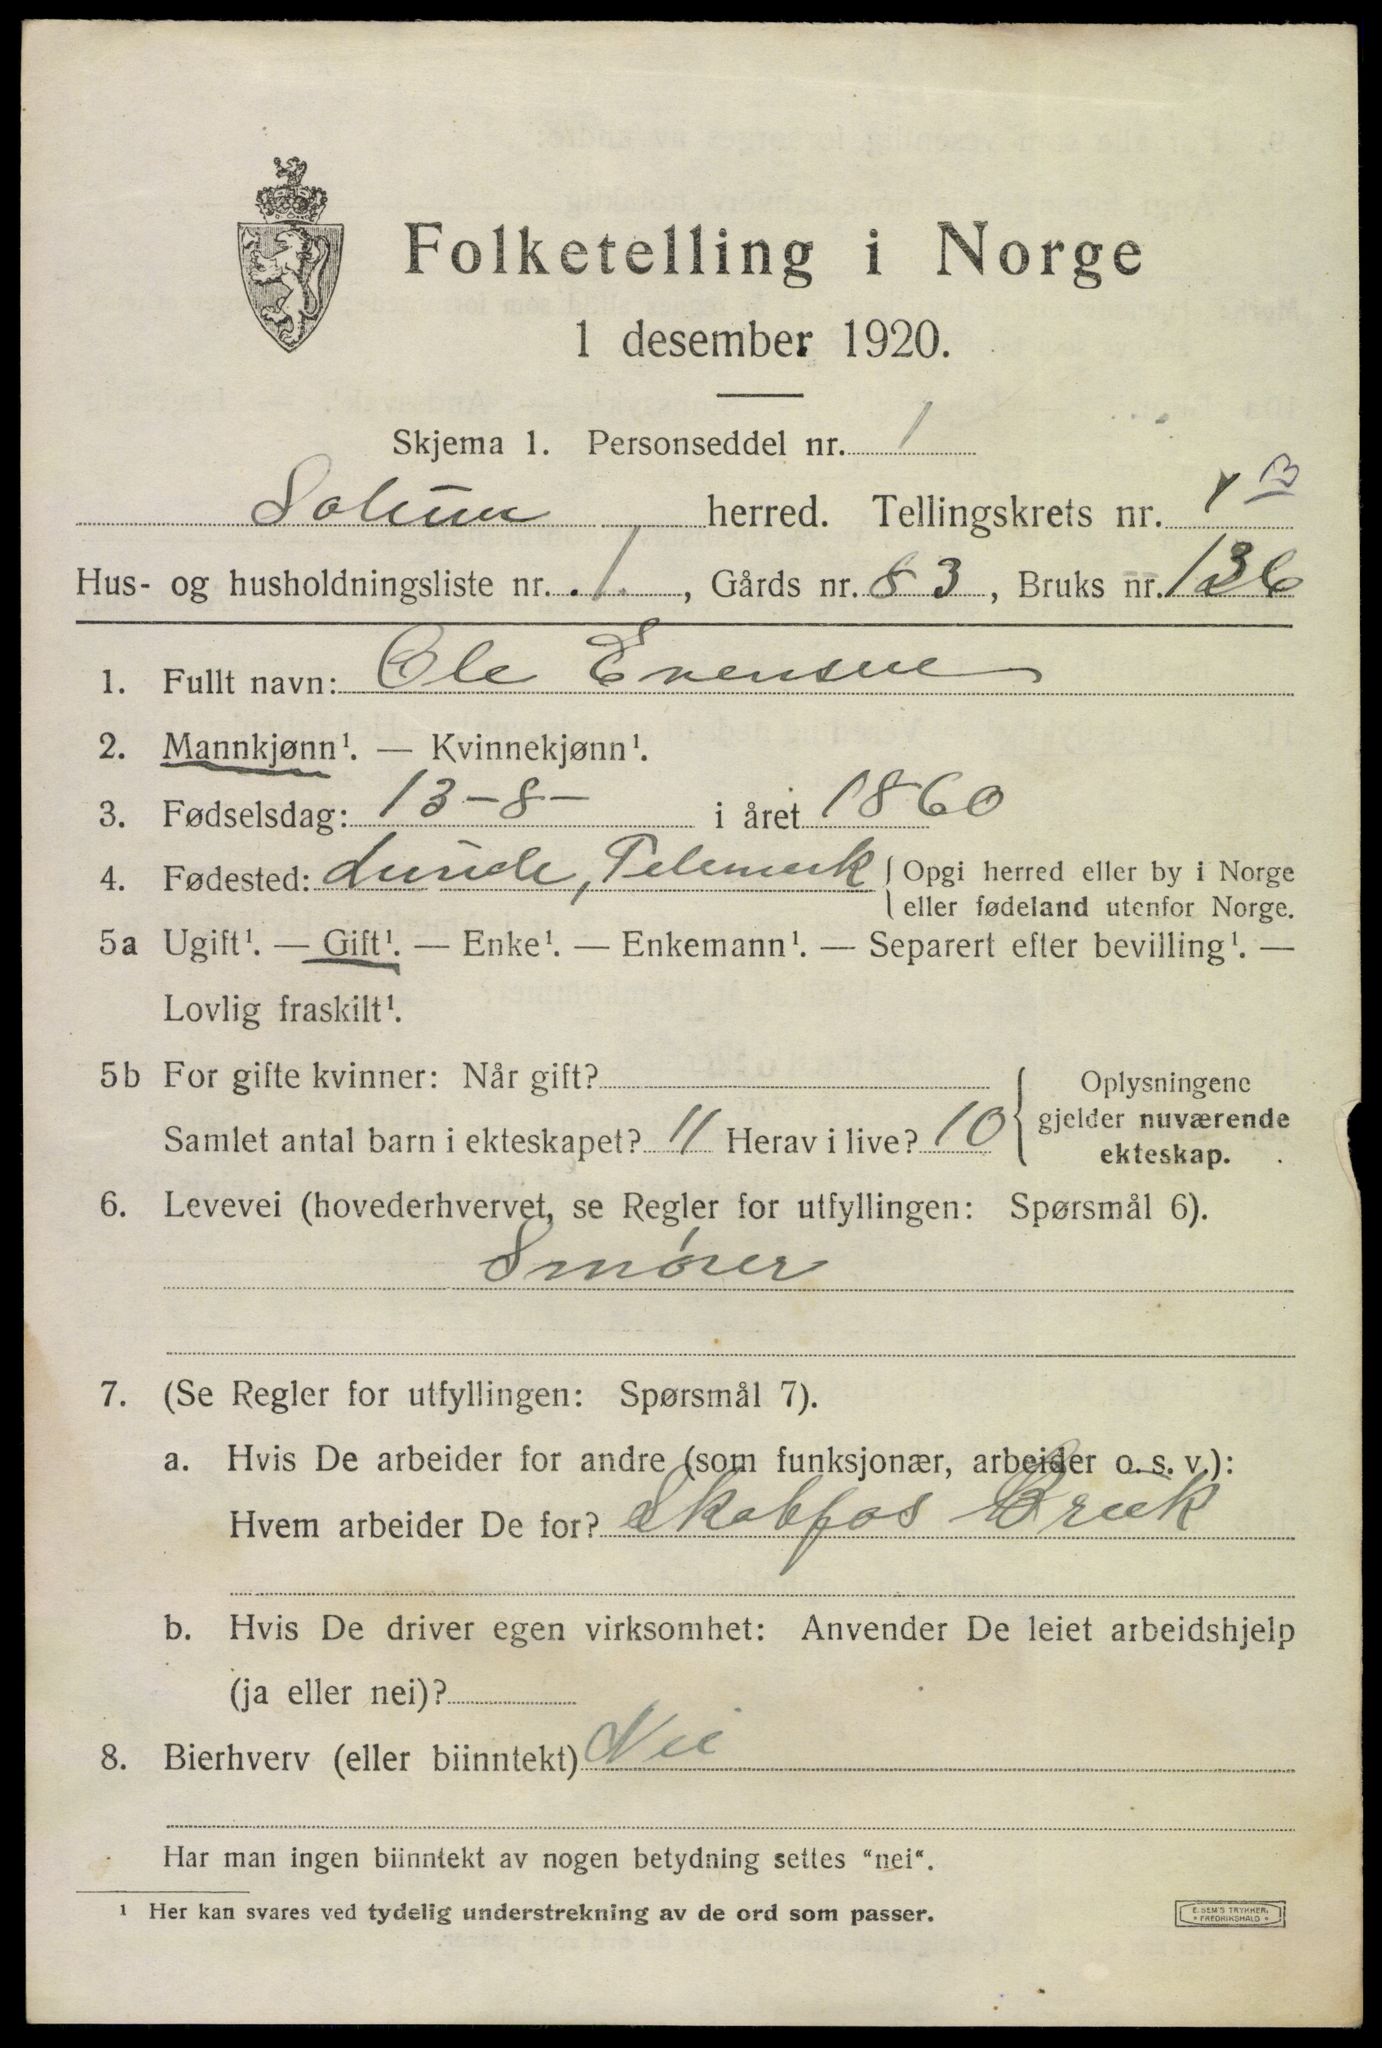 Folketelling i Norge
1 desember 1920.
Skjema 1. Personseddel nr. 1
Solum herred. Tellingskrets nr. 4 B
Hus- og husholdningsliste nr. 1, Gårds nr. 83, Bruks nr. 136
1. Fullt navn: Ole Evensen
2. Mannkjønn¹. — Kvinnekjønn¹.
3. Fødselsdag: 13-8- i året 1860
4. Fødested: Lunde, Telemark { Opgi herred eller by i Norge
eller fødeland utenfor Norge.
5a Ugift¹. — Gift¹. — Enke¹. — Enkemann¹. — Separert efter bevilling¹. —
Lovlig fraskilt¹.
5b For gifte kvinner: Når gift?
Samlet antal barn i ekteskapet? 11 Herav i live? 10
Oplysningene
gjelder nuværende
ekteskap.
6. Levevei (hovederhvervet, se Regler for utfyllingen: Spørsmål 6).
Smører
7. (Se Regler for utfyllingen: Spørsmål 7).
a. Hvis De arbeider for andre (som funksjonær, arbeider o. s. v.):
Hvem arbeider De for? Skotfos Bruk
b. Hvis De driver egen virksomhet: Anvender De leiet arbeidshjelp
(ja eller nei)?
8. Bierhverv (eller biinntekt) Nei
Har man ingen biinntekt av nogen betydning settes "nei".
¹ Her kan svares ved tydelig understrekning av de ord som passer.
E. SEM'S TRYKKERI
FREDRIKSHALD